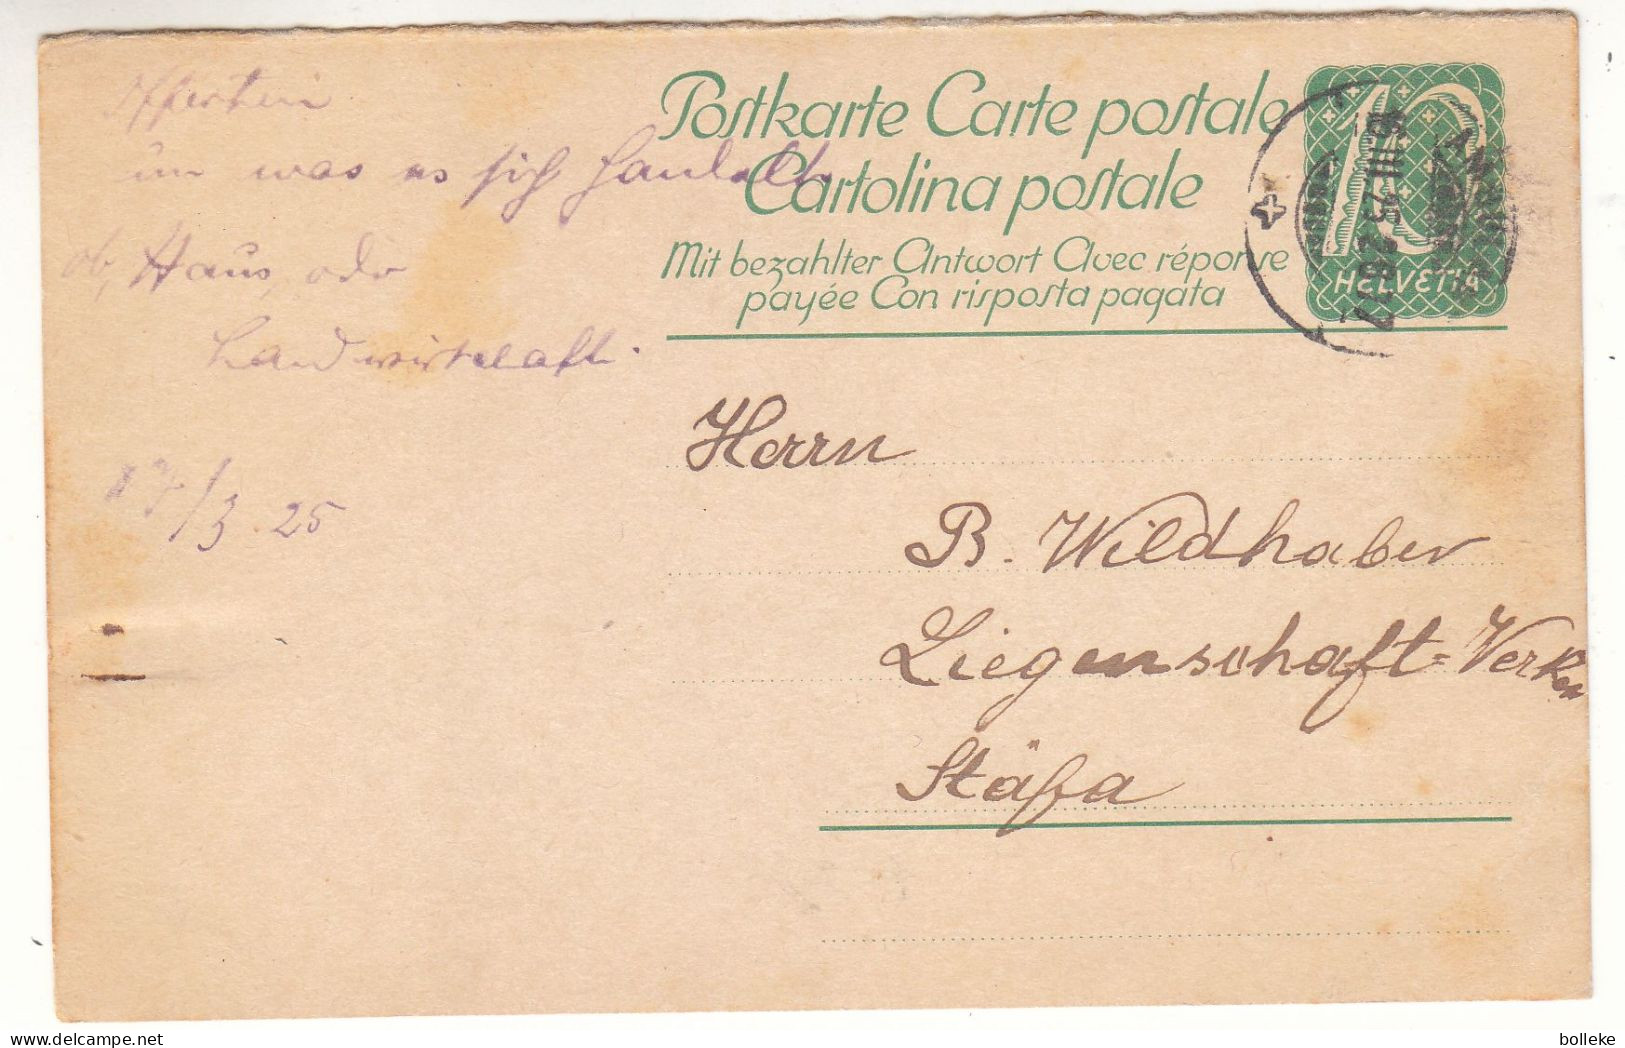 Offertein
um was es sich handelt
ob, Haus, oder
Landwirtschaft.
17/3. 25
Postkarte Carte postale
Cartolina postale
Mit bezahlter Antwort Avec réponse
payée Con risposta pagata
10
HELVETIA
III.25
Herrn
B. Wildhaber
Liegenschaft=Verk
Stäfa
bolleke